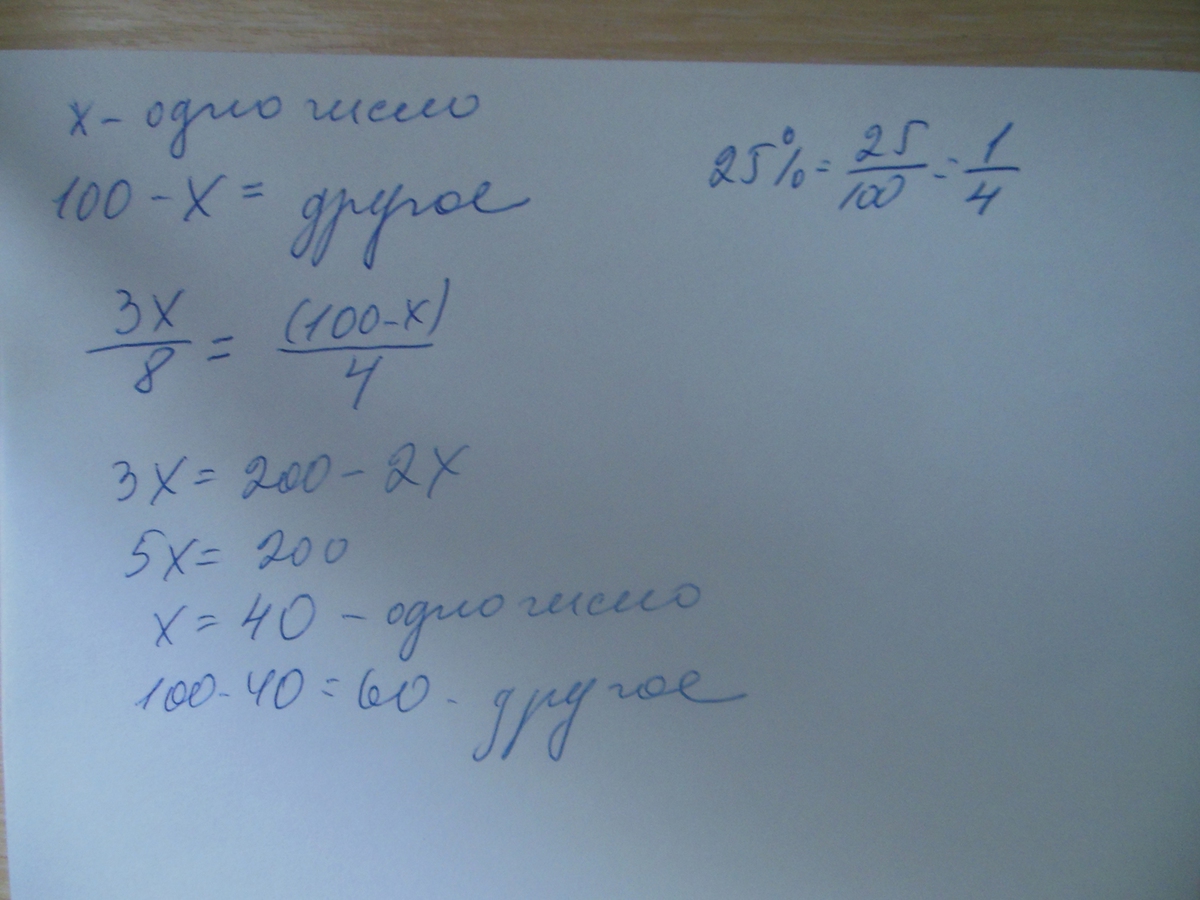 x - одно число
100 - x = другое
25% = 25/100 = 1/4
3x/8 = (100-x)/4
3x = 200 - 2x
5x = 200
x = 40 - одно число
100 - 40 = 60 - другое